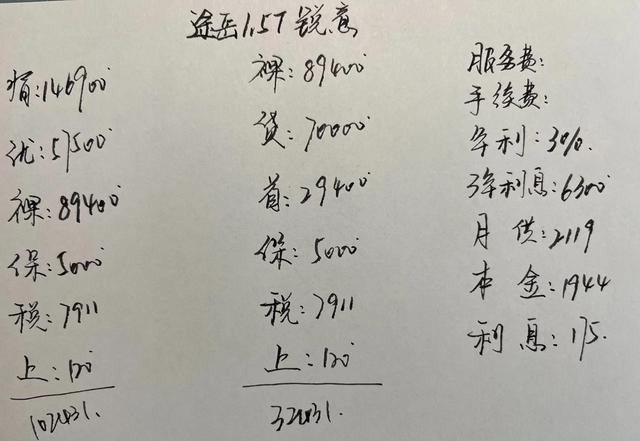 途岳1.5T锐意
指:146900
优:57500
裸:89400
保:5000
税:7911
上:120
102431.
裸:89400
贷:70000
首:29400
保:5000
税:7911
上:120
32431.
服务费:
手续费:
年利:3%.
3年利息:6300
月供:2119
本金:1944
利息:175.